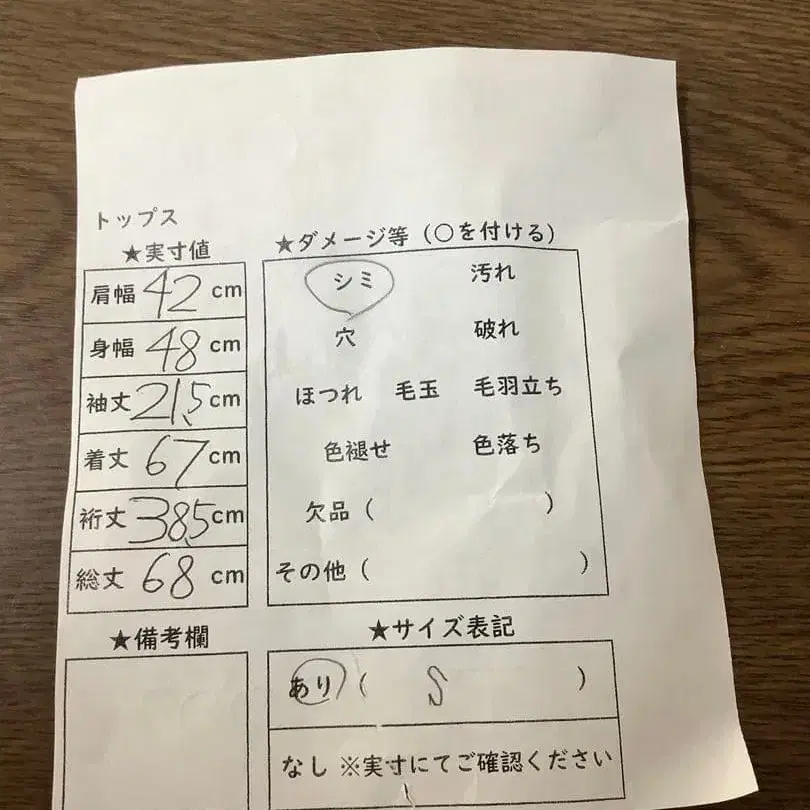 トップス
★実寸値
肩幅 42 cm
身幅 48 cm
袖丈 21.5 cm
着丈 67 cm
裄丈 38.5 cm
総丈 68 cm
★備考欄
★ダメージ等（○を付ける）
シミ 汚れ
穴 破れ
ほつれ 毛玉 毛羽立ち
色褪せ 色落ち
欠品（ ）
その他（ ）
★サイズ表記
あり（ S ）
なし ※実寸にてご確認ください